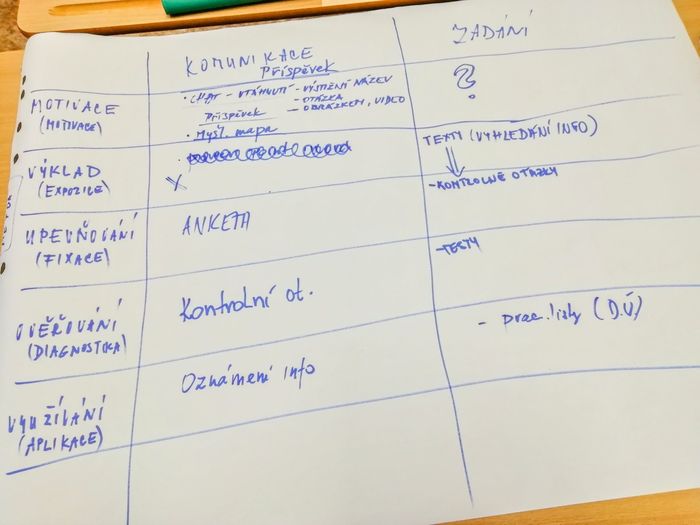 KOMUNIKACE
ZADÁNÍ
MOTIVACE
(MOTIVACE)
Příspěvek
• CHAT - VTÁHNUTÍ - VÝSTIŽNÍ NÁZEV
- OTÁZKA
- OBRÁZKEM, VIDEO
Příspěvek
• Myšl. mapa
?
VÝKLAD
(EXPOZICE)
X
TEXTY (VYHLEDÁNÍ INFO)
- KONTROLNÉ OTÁZKY
UPEVŇOVÁNÍ
(FIXACE)
ANKETA
- TESTY
OVĚŘOVÁNÍ
(DIAGNOSTIKA)
Kontrolní ot.
- prac. listy (D.Ú)
VYUŽÍVÁNÍ
(APLIKACE)
Oznámení info